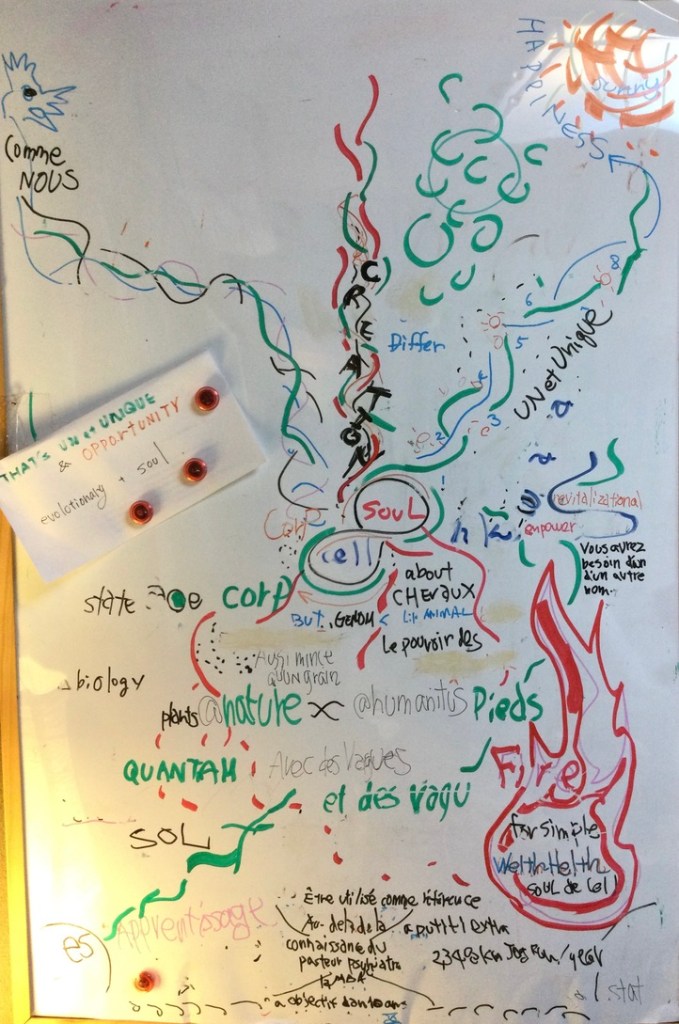 HAPPINESSE
sunny
Comme
NOUS
CREATION
Differ
UN et UNIQUE
6
8
5
4
3
2
THAT'S UN et UNIQUE
& OPPORTUNITY
evolutionary + soul
SOUL
Cell
Corp
revitalizational
empower
Vous avrez
besoin d'un
d'un autre
nom.
state
corp
about
CHEVAUX
BUT
ANIMAL
Le pouvoir des
Aussi mince
qu'un grain
biology
plants @nature
@humanitus Pieds
QUANTAM
Avec des Vagues
et des vagu
Fire
SOL
for simple
Welth Helth
soul de Cell
Apprentissage
es
Être utilisé comme référence
Au delà de la
connaissane du
pasteur psychiatre
a objectif dans 10 ans
stat